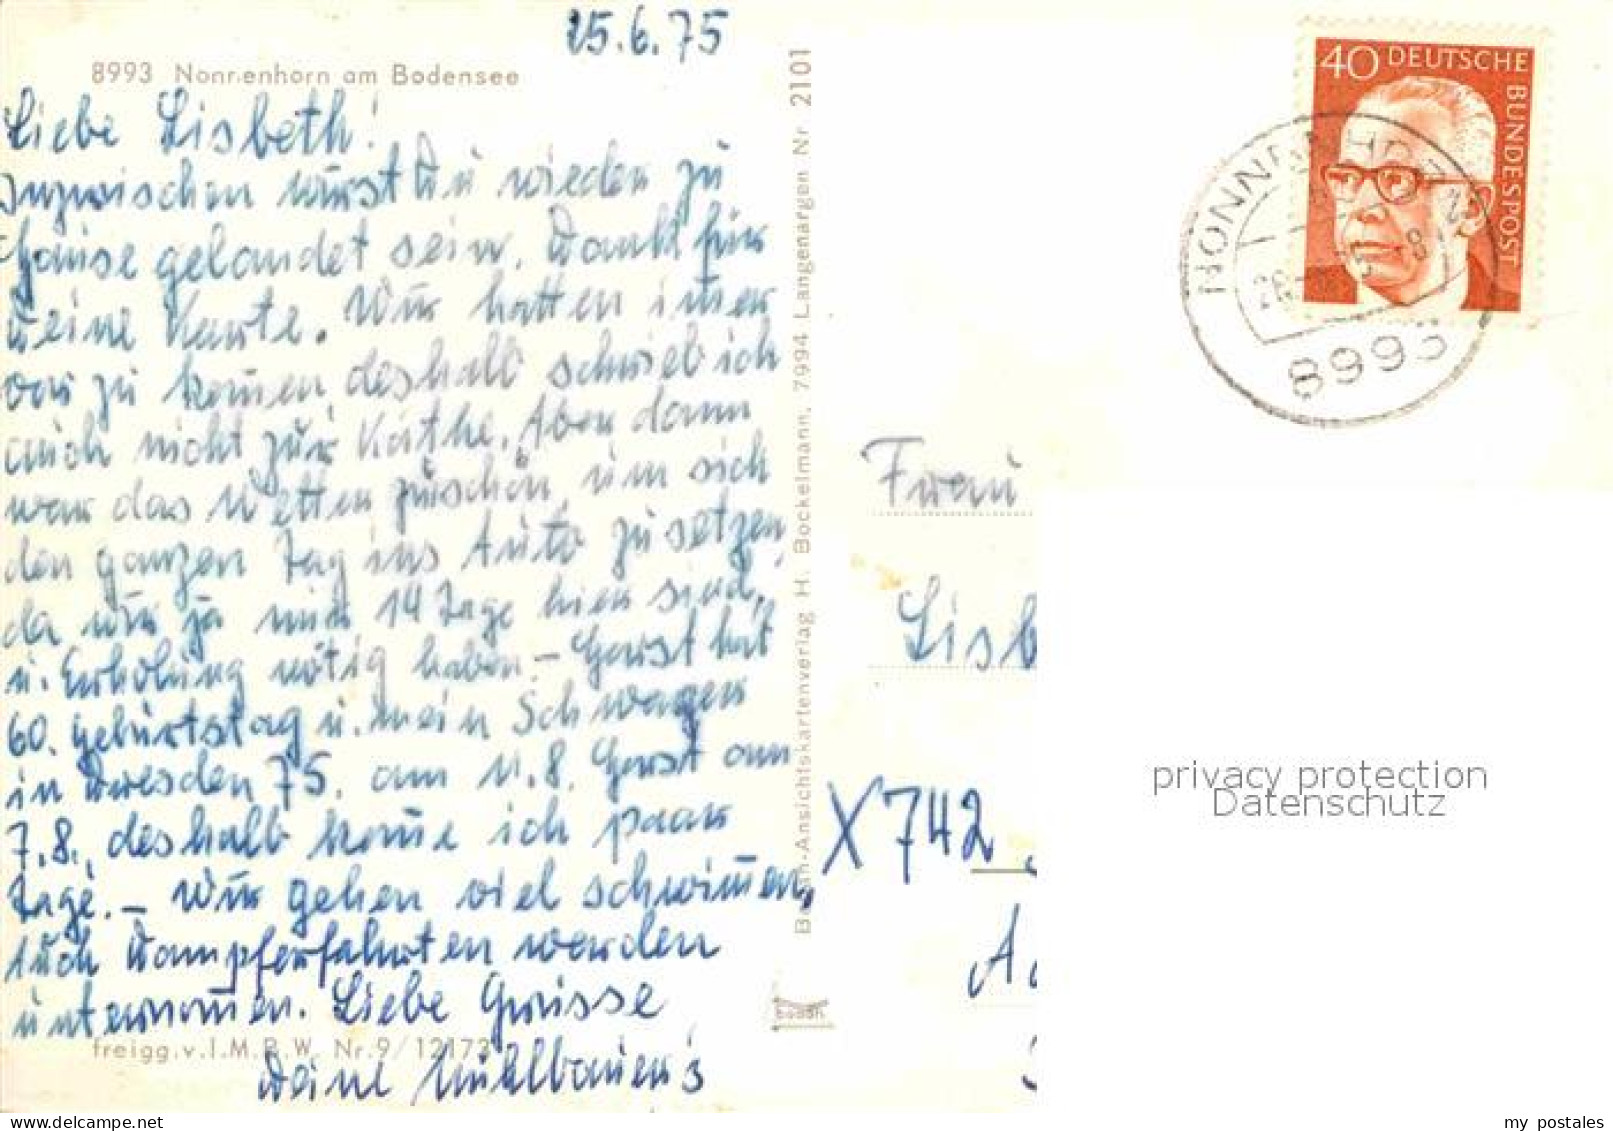 25.6.75
8993 Nonnenhorn am Bodensee
Liebe Lisbeth!
Inzwischen wirst Du wieder zu
Hause gelandet sein. Dank für
Deine Karte. Wir hatten imer
vor zu komen, deshalb schrieb ich
auch nicht zur Käthe. Aber dann
war das Wetter zu schön, um sich
den ganzen Tag ins Auto zu setzen,
da wir ja nur 14 Tage hier sind,
u. Erholung nötig haben. – Horst hat
60. Geburtstag u. mein Schwager
in Dresden 75. am 11.8. Horst am
7.8., deshalb kome ich paar
Tage. – Wir gehen viel schwimen,
Auch Dampferfahrten werden
unternomen. Liebe Grüsse
Deine Mühlbauer's
freigg.v.I.M.B.W. Nr.9/12173
Bodan-Ansichtskartenverlag H. Bockelmann, 7994 Langenargen Nr 2101
40 DEUTSCHE
BUNDESPOST
NONNENHORN
8993
Frau
Lisb
X742
privacy protection
Datenschutz
my postales